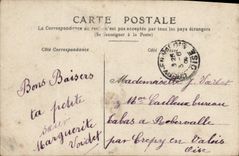 CARTE POSTALE
La Correspondance au recto n'est pas acceptée par tous les pays étrangers
(Se renseigner à la Poste)
Côté Correspondance
Bons Baisers
ta petite
sœur
Marguerite
Voidet
CRÉPY-EN-VALOIS
OISE
Mademoiselle J Voidet
tabac à Roberval
par Crepy en Valois
Oise